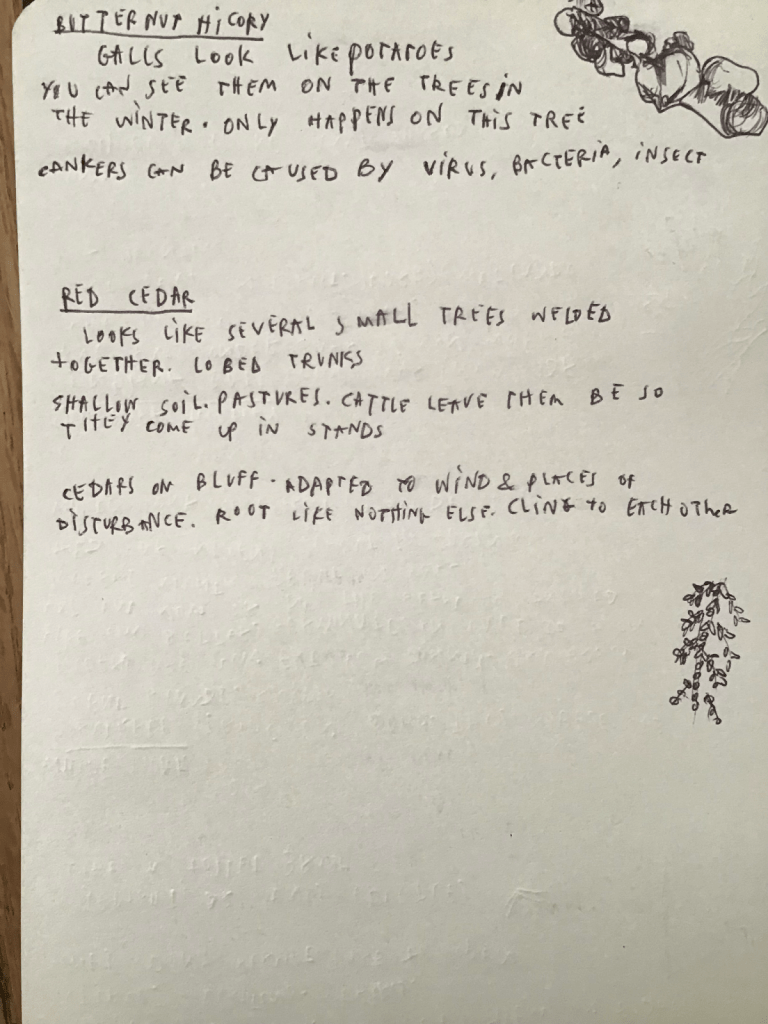 BUTTERNUT HICORY
GALLS LOOK LIKE POTATOES
YOU CAN SEE THEM ON THE TREES IN
THE WINTER. ONLY HAPPENS ON THIS TREE
CANKERS CAN BE CAUSED BY VIRUS, BACTERIA, INSECT
RED CEDAR
LOOKS LIKE SEVERAL SMALL TREES WELDED
TOGETHER. LOBED TRUNKS
SHALLOW SOIL. PASTURES. CATTLE LEAVE THEM BE SO
THEY COME UP IN STANDS
CEDARS ON BLUFF. ADAPTED TO WIND & PLACES OF
DISTURBANCE. ROOT LIKE NOTHING ELSE. CLING TO EACH OTHER